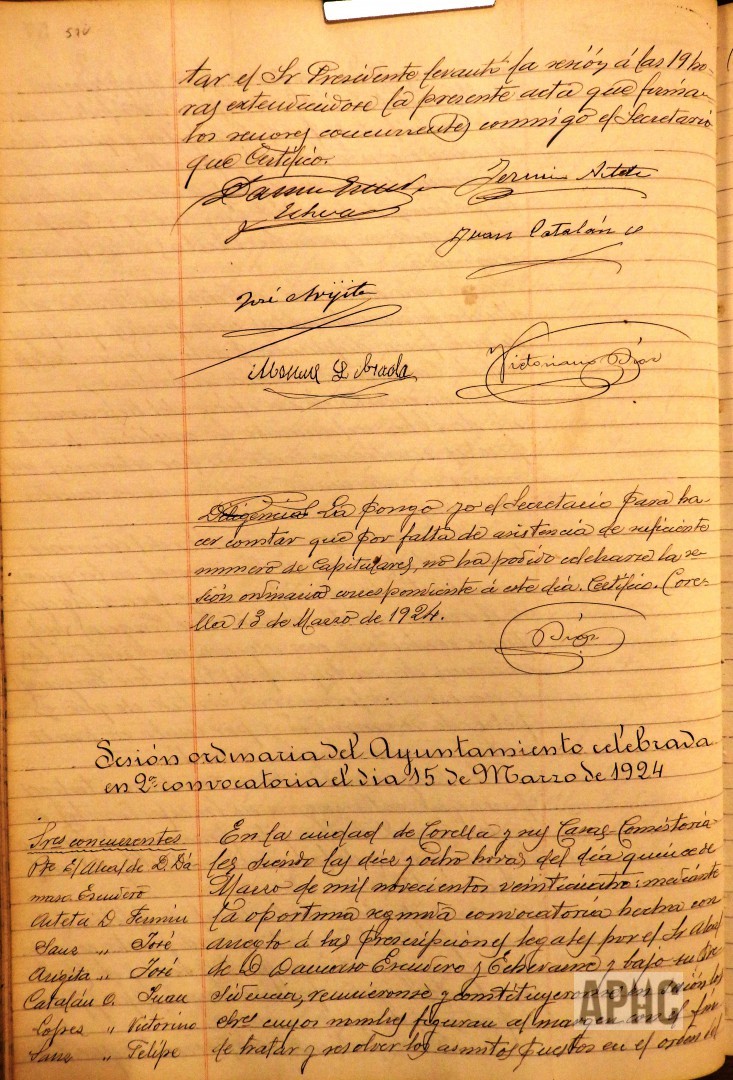 tar el Sr Presidente levantó la sesión á las 19 ho-
ras extendiendose la presente acta que firman
los señores concurrentes conmigo el Secretario
que Certifico.
Fermin Arteta
Juan Catalán
José Angita
Victoriano Diaz
Diligencia La pongo yo el Secretario para ha-
cer constar que por falta de asistencia de suficiente
numero de Capitulares, no ha podido celebrarse la se-
sión ordinaria correspondiente á este día. Certifico. Core-
lla 13 de Marzo de 1924.
Diaz
Sesión ordinaria del Ayuntamiento celebrada
en 2ª convocatoria el dia 15 de Marzo de 1924
Sres concurrentes
Pte El Alcalde D. Dá-
maso Escudero
Arteta D. Fermin
Sanz „ José
Angita „ José
Catalán O. Juan
Lopez „ Victorino
Sanz „ Felipe
En la ciudad de Corella y sus Casas-Comistoria-
les siendo las diez y ocho horas del día quince de
Marzo de mil novecientos veinticuatro: mediante
la oportuna segunda convocatoria hecha con
arreglo á las prescripciones legales por el Sr Alcal
de D Damaso Escudero y Echevarria y bajo su Pre
sidencia, reunieronse y constituyeronse en sesión los
Sres cuyos nombres figuran al margen con el fin
de tratar y resolver los asuntos puestos en el orden del
APHC